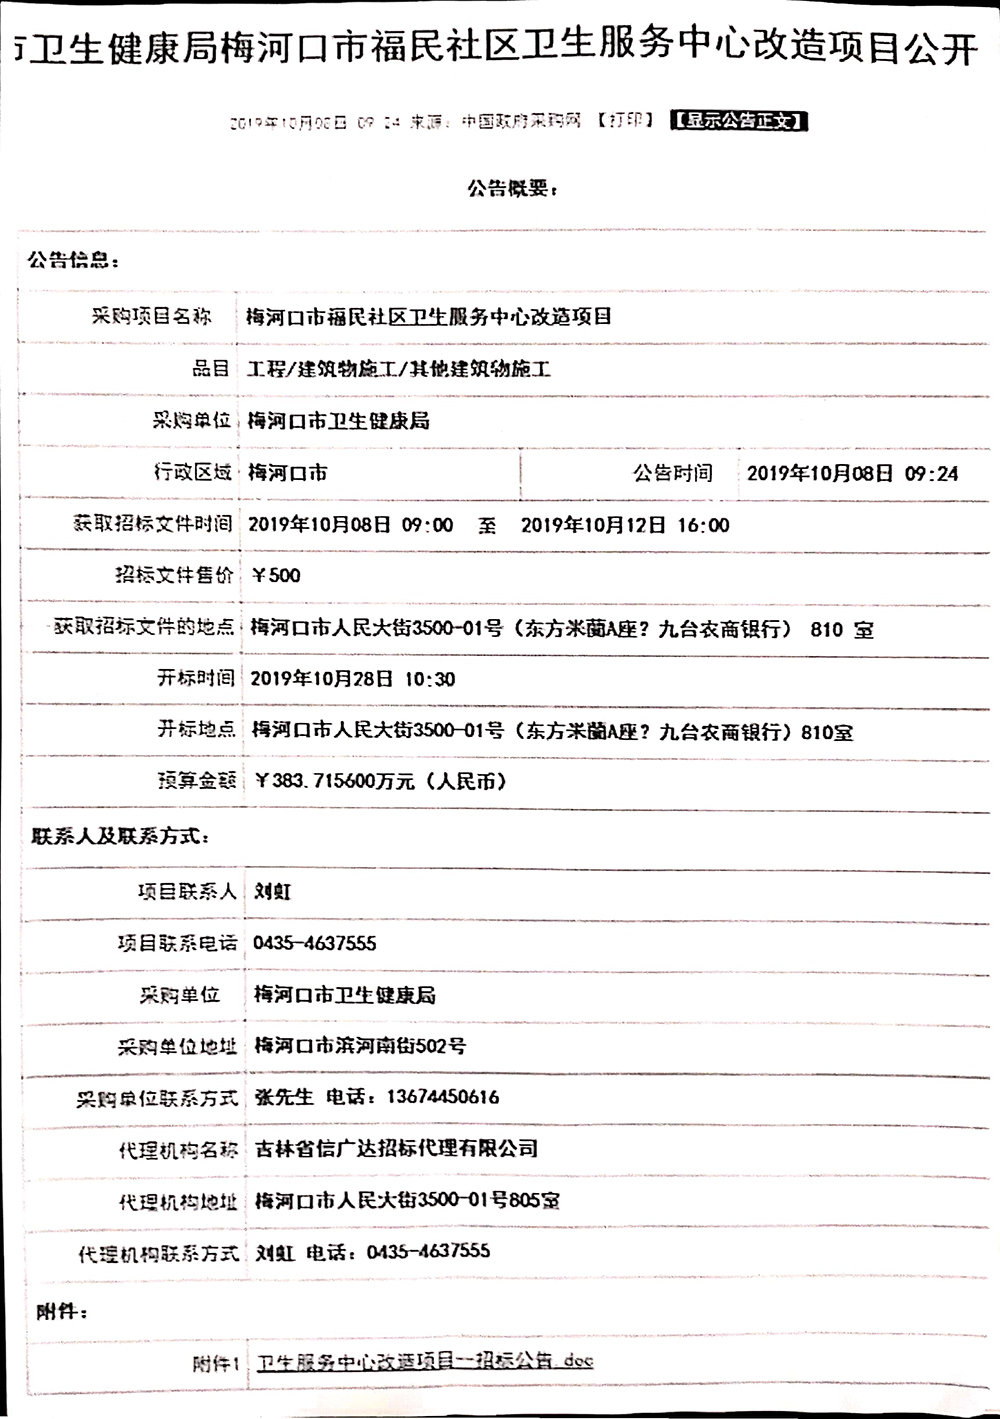 市卫生健康局梅河口市福民社区卫生服务中心改造项目公开
2019年10月08日 09:24 来源：中国政府采购网 【打印】 【显示公告正文】
公告概要：
公告信息：
采购项目名称 梅河口市福民社区卫生服务中心改造项目
品目 工程/建筑物施工/其他建筑物施工
采购单位 梅河口市卫生健康局
行政区域 梅河口市 公告时间 2019年10月08日 09:24
获取招标文件时间 2019年10月08日 09:00 至 2019年10月12日 16:00
招标文件售价 ￥500
获取招标文件的地点 梅河口市人民大街3500-01号（东方米蘭A座？九台农商银行） 810 室
开标时间 2019年10月28日 10:30
开标地点 梅河口市人民大街3500-01号（东方米蘭A座？九台农商银行）810室
预算金额 ￥383.715600万元（人民币）
联系人及联系方式：
项目联系人 刘虹
项目联系电话 0435-4637555
采购单位 梅河口市卫生健康局
采购单位地址 梅河口市滨河南街502号
采购单位联系方式 张先生 电话：13674450616
代理机构名称 吉林省信广达招标代理有限公司
代理机构地址 梅河口市人民大街3500-01号805室
代理机构联系方式 刘虹 电话：0435-4637555
附件：
附件1 卫生服务中心改造项目--招标公告.doc